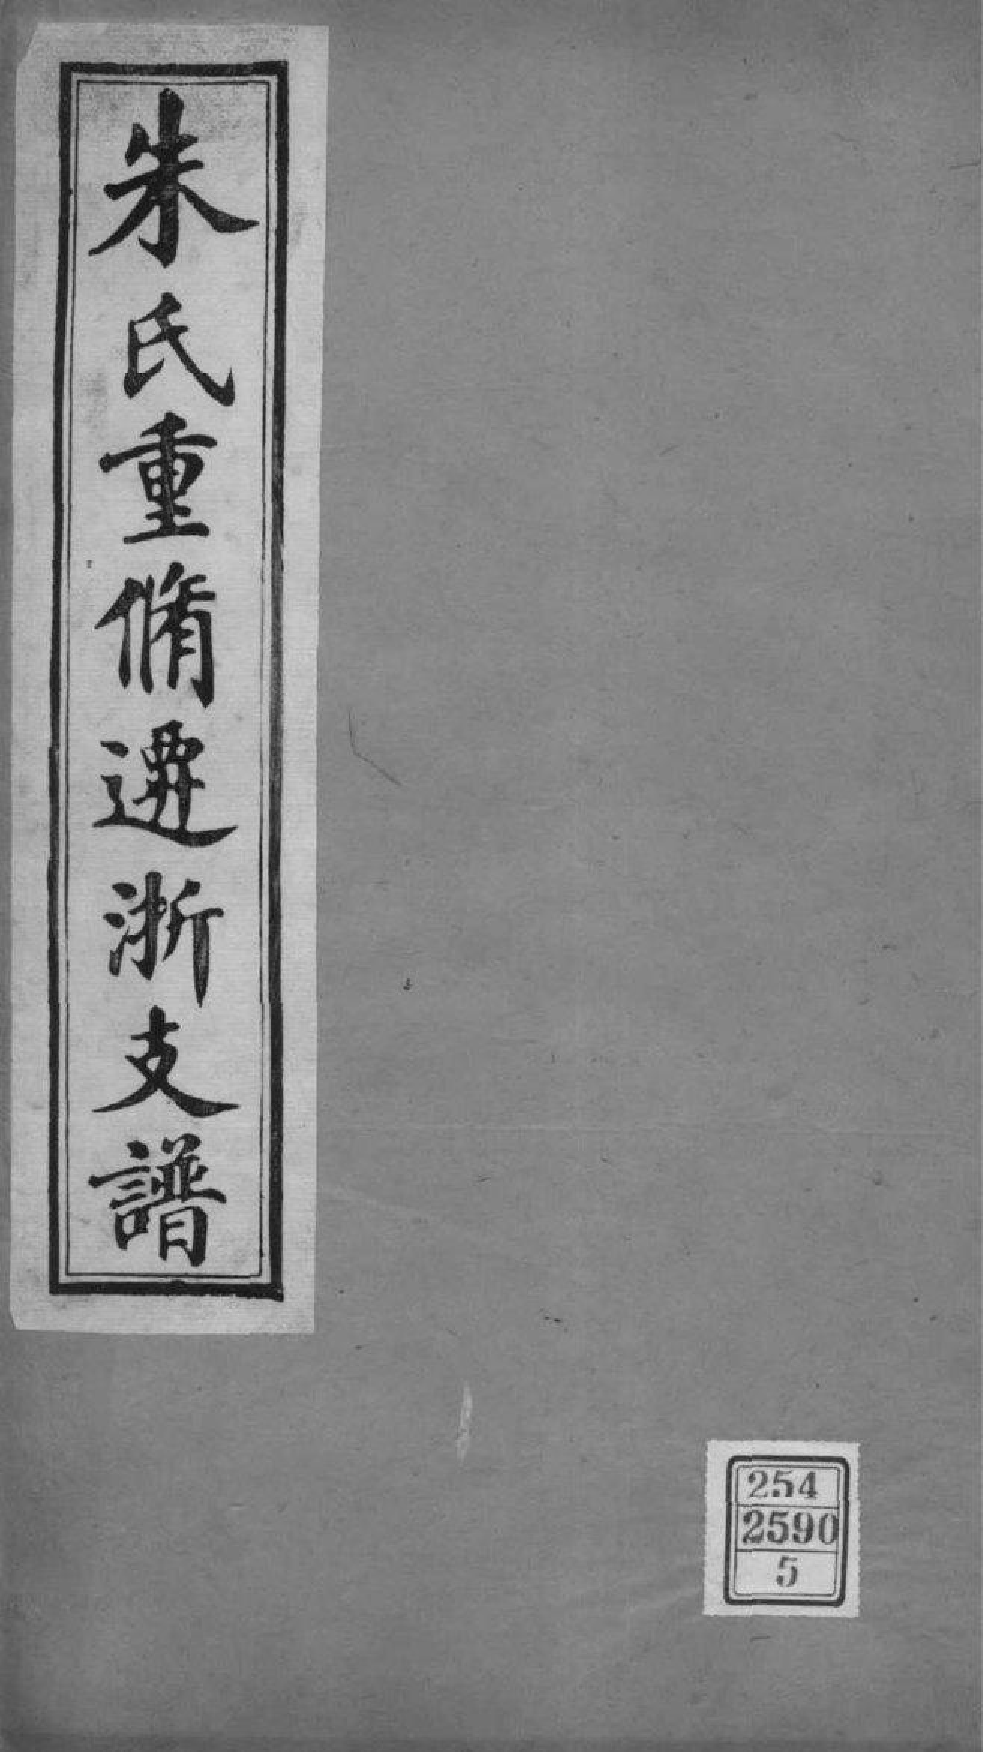 朱氏重脩遷浙支譜
254
2590
5